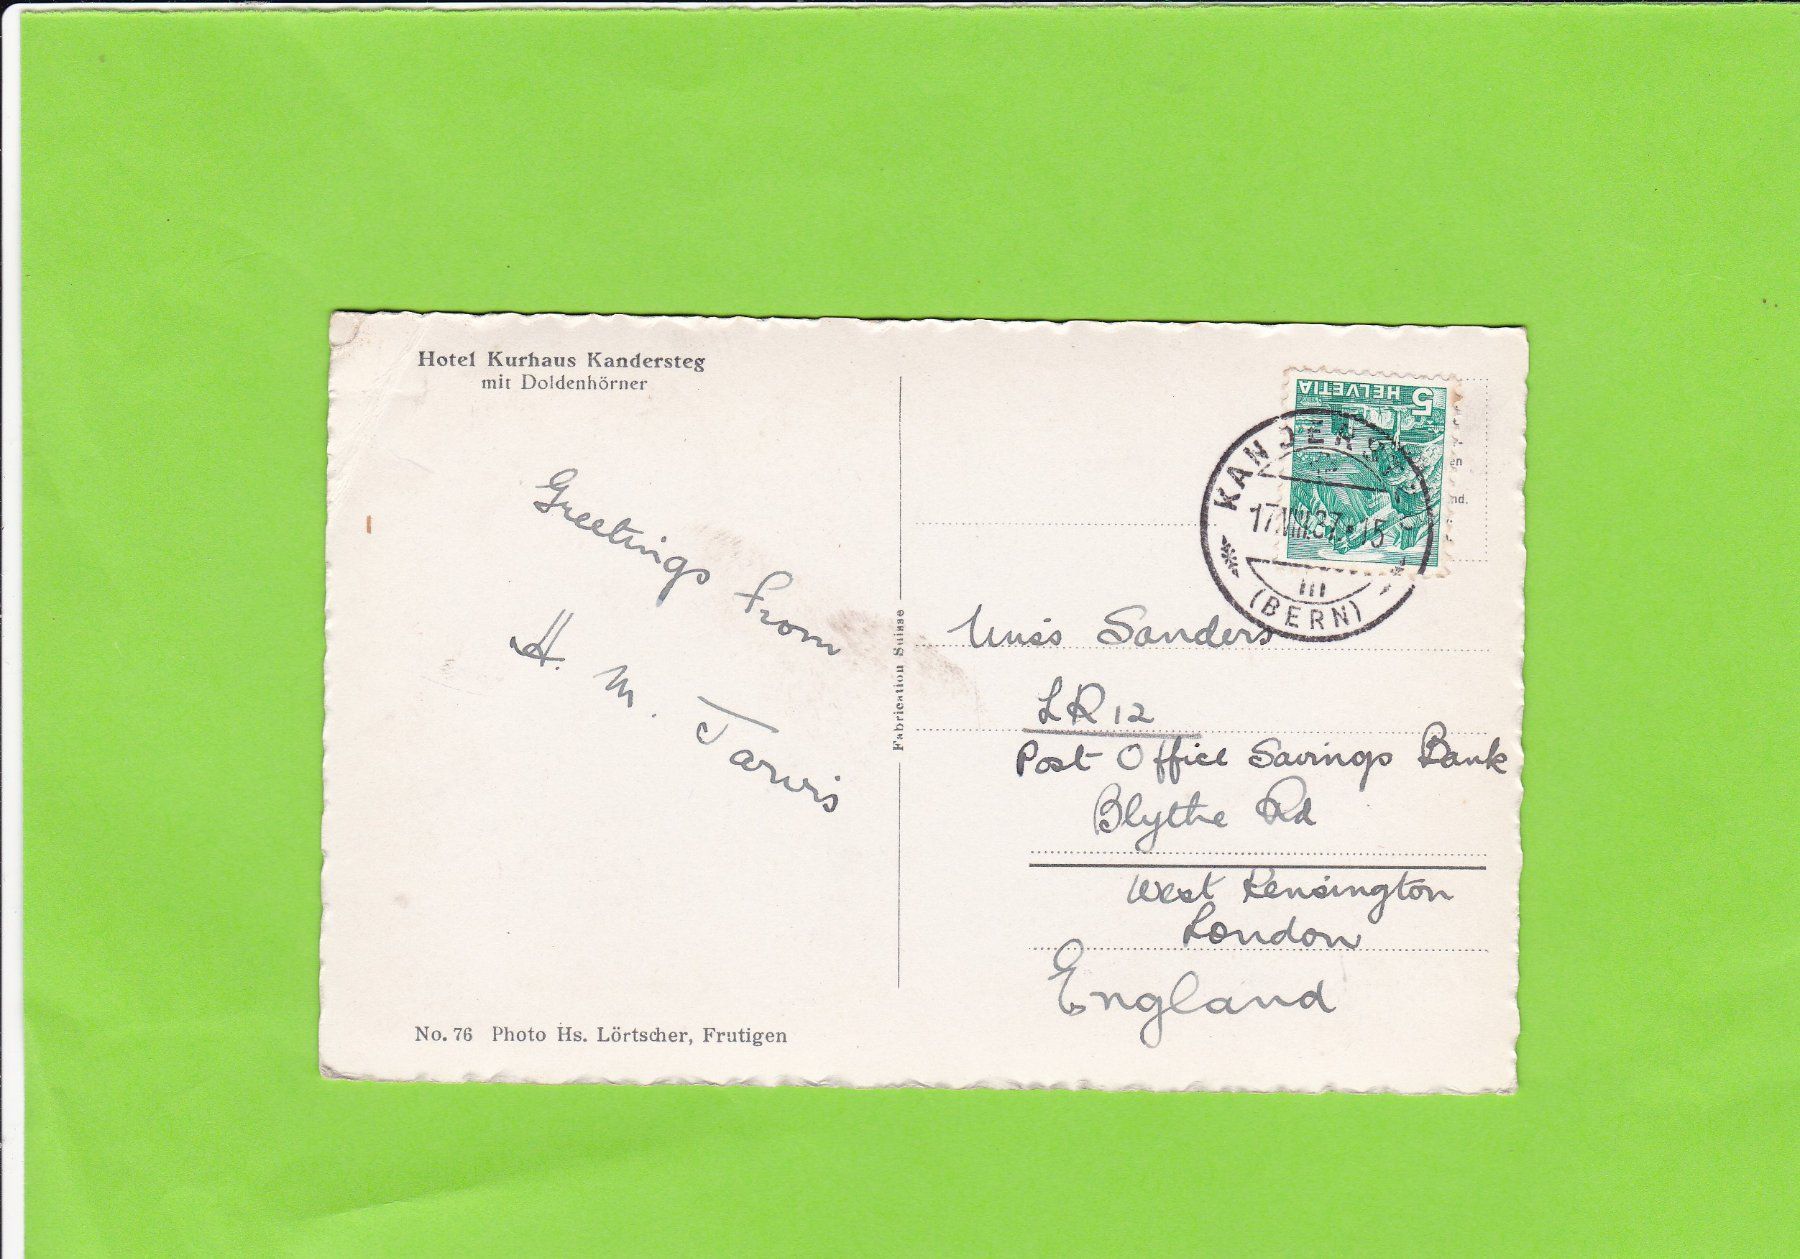 Hotel Kurhaus Kandersteg
mit Doldenhörner
Greetings from
H. M. Jarvis
No. 76 Photo Hs. Lörtscher, Frutigen
Fabrication Suisse
HELVETIA 5
KANDERSTEG
17.VIII.37.15
(BERN)
en
nd.
Miss Sanders
LR 12
Post Office Savings Bank
Blythe Rd
West Kensington
London
England